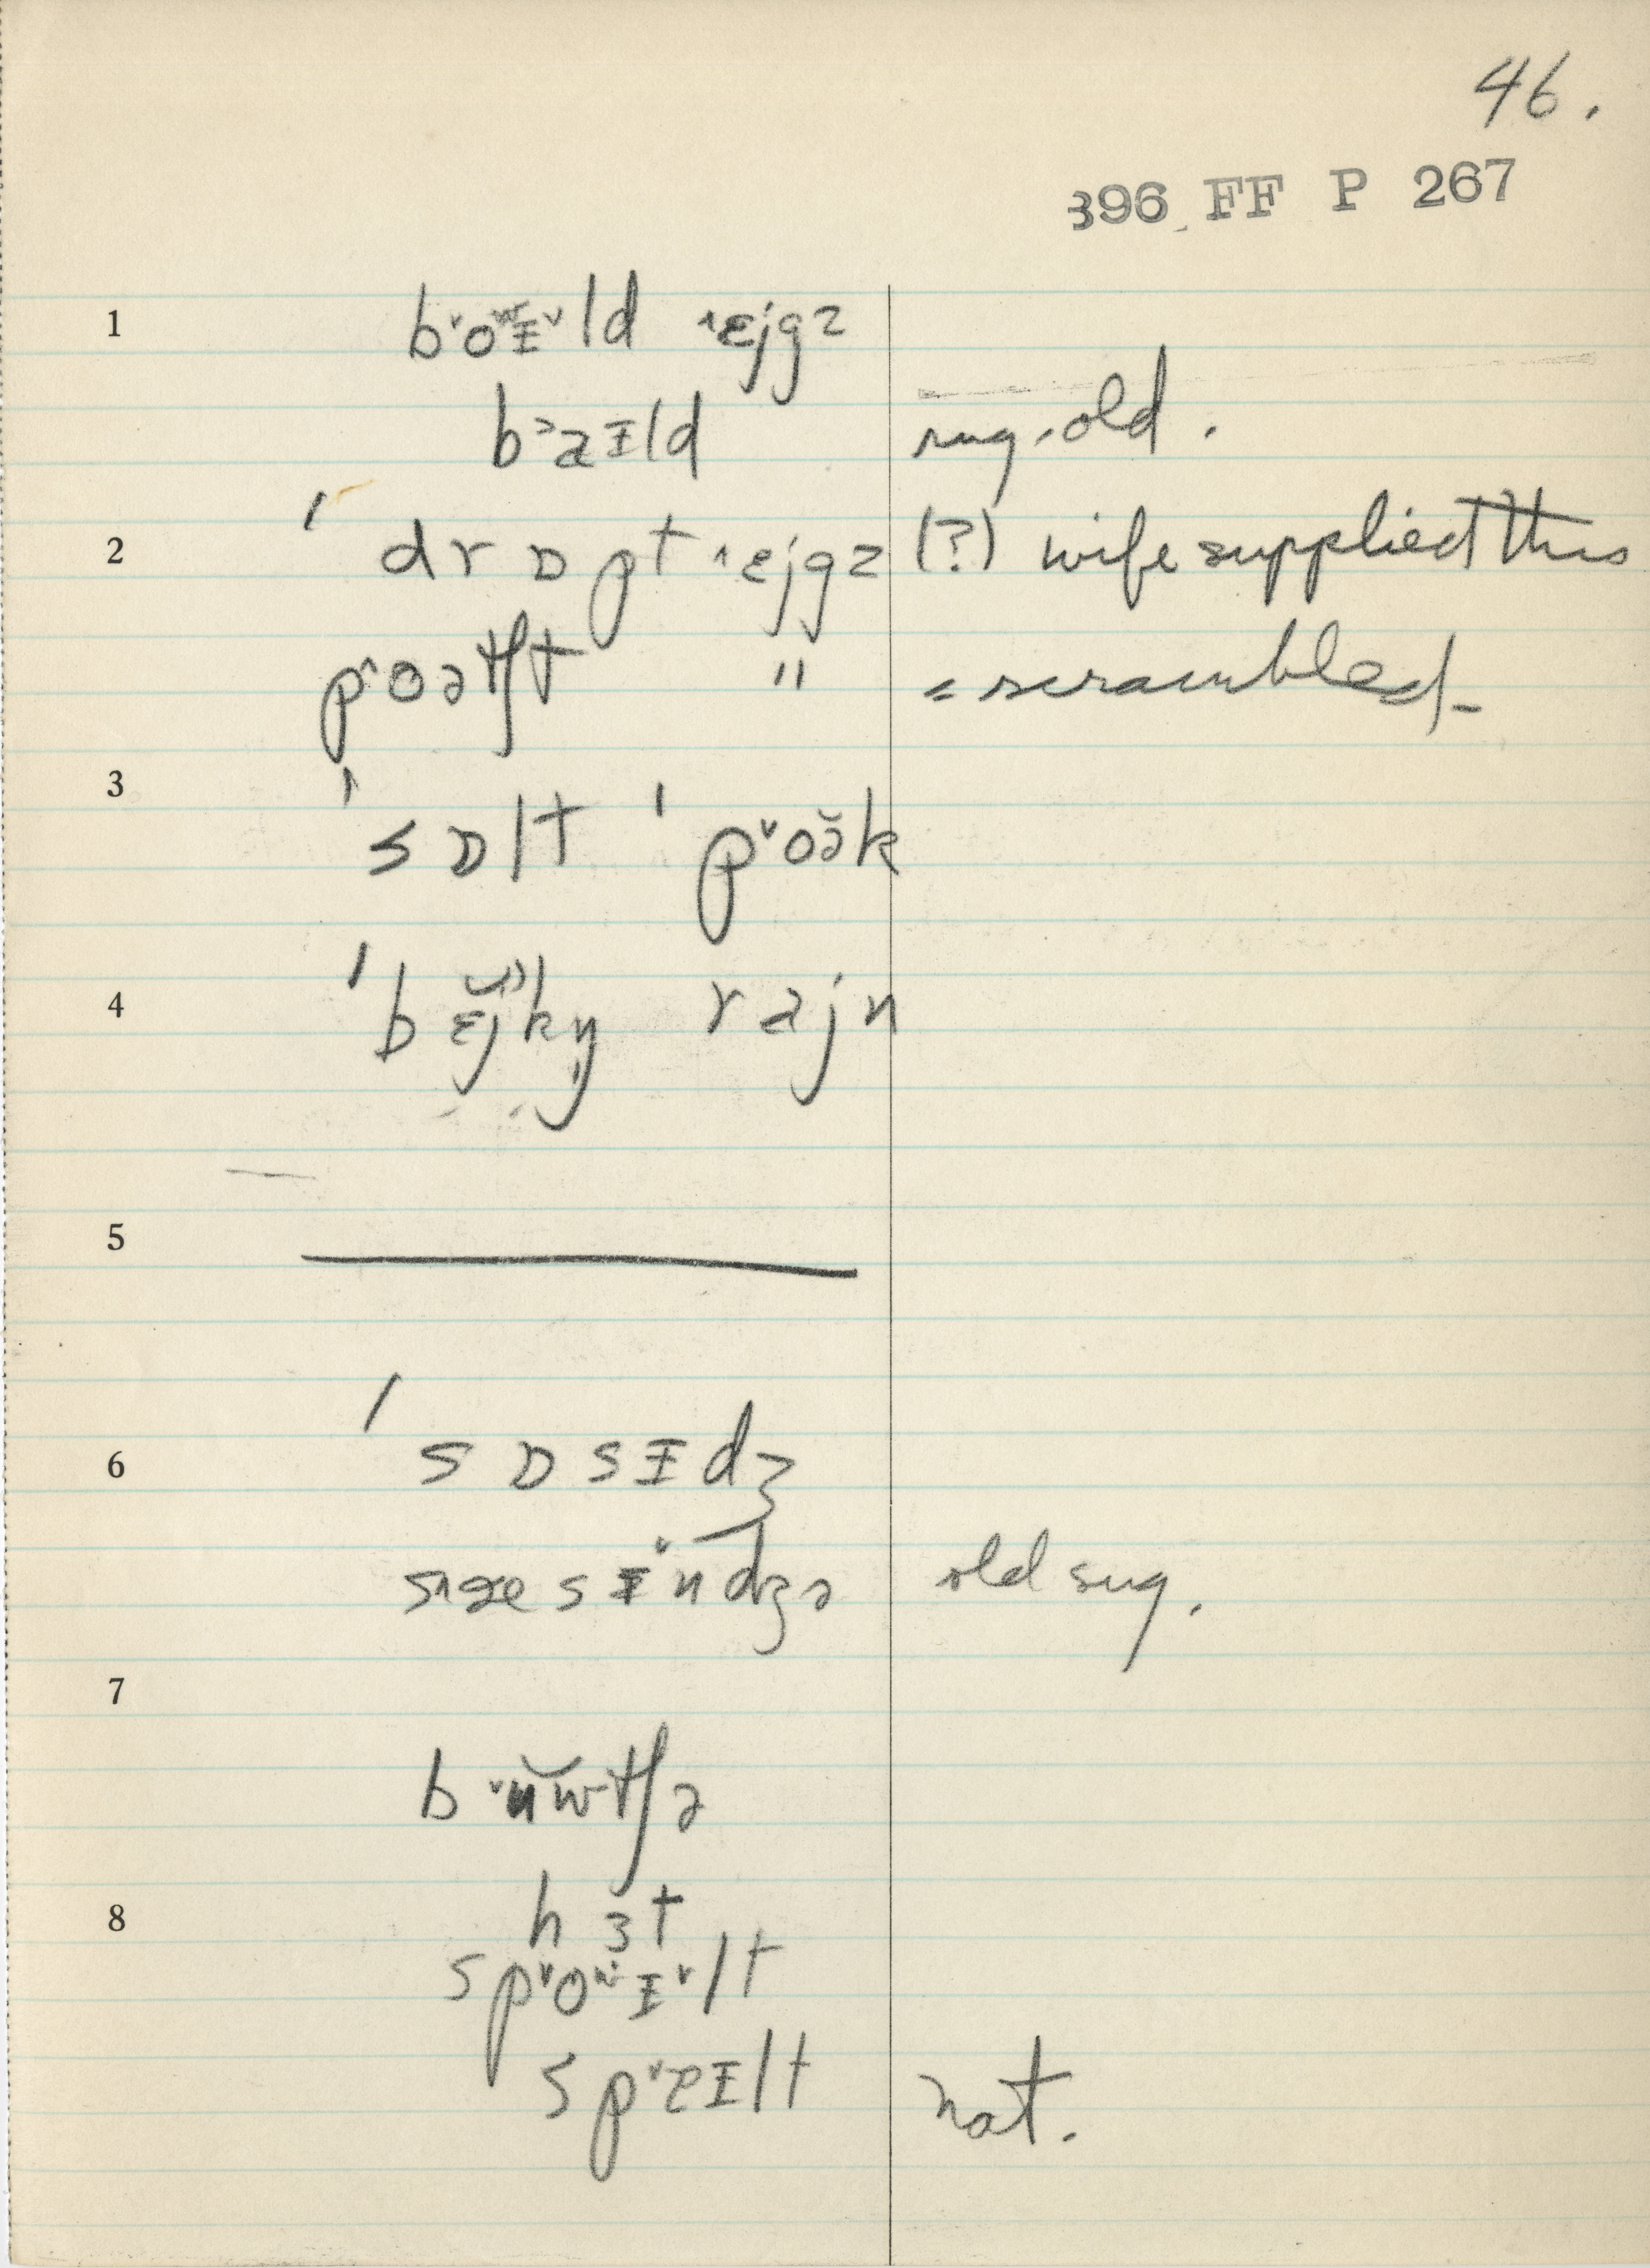 46.
396 FF P 267
1 b˅oʷɪ˅ld ˄ɛjgz
b˃aɪld sug. old.
2 ˈdrɒpt ˄ɛjgz (?) wife supplied this
p˄oətʃt " = scrambled–
3 ˈsɒlt ˈp˅oə̆k
4 ˈbɛ̆jkŋ̩ rajn
5
6 ˈsɒsɪdʒ
s˄æsɪ˅ndʒə old sug.
7
b˅ŭwtʃə
8 hɜt
sp˅oʷɪ˅lt
sp˅ɐɪlt nat.